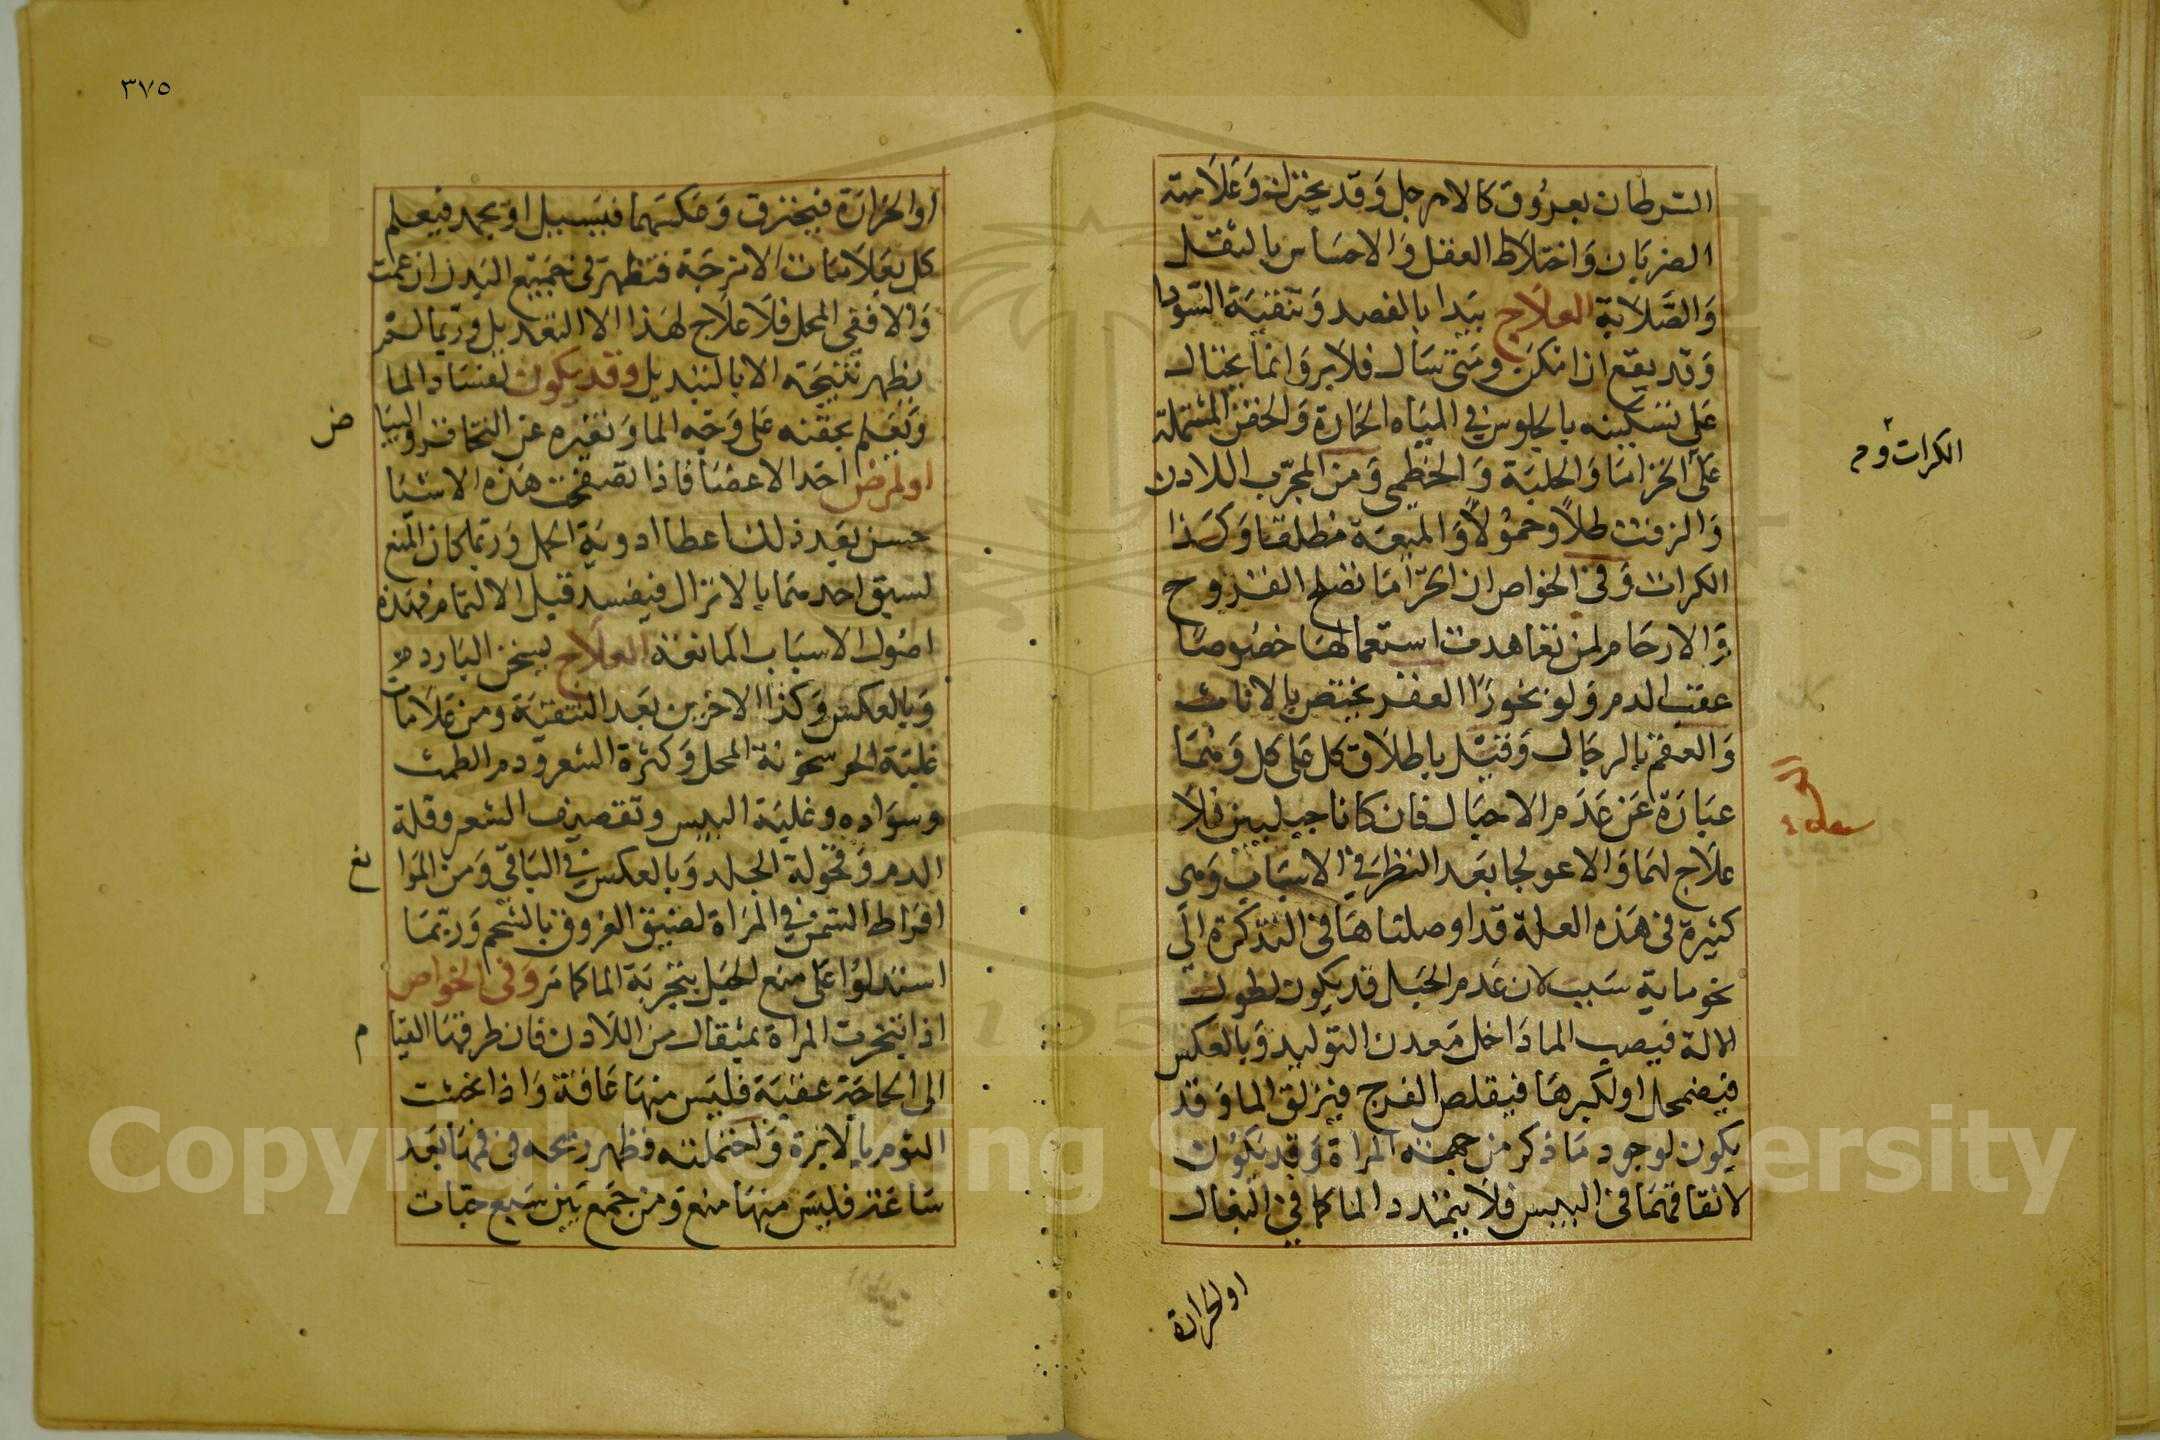 السرطان بعروق كالارجل وقد يختزلت وعلامته
الضربان واختلاط العقل والاحساس بالثقل
والصلابة العلاج يبدا بالفصد وتنقية السودا
وقد يقع ان امكن ومتى سال فلا برو انما يحتال
على تسكينه بالجلوس في المياه الحارة والحقن المشتملة
على الخزاما والحلبة والخطمى ومن المجرب اللادن
والزفت طلاً وحمولاً والميعة مطلقا وكذا
الكراث وفى الخواص ان الخزاما تصلح الفروج
والارحام لمن تعاهدت استعمالها خصوصا
عقب الدم ولو بخورًا العقر يختص بالاناث
والعقم بالرجال وقيل باطلاق كل على كل وهما
عبارة عن عدم الاحبال فان كانا جبليين فلا
علاج لهما والا عولجا بعد النظر في الاسباب وهى
كثيرة فى هذه العلة قد اوصلناها فى التذكرة الى
نحو ماية سبب لان عدم الحبل قد يكون لطول
الالة فيصب الما داخل معدن التوليد وبالعكس
فيضمحل او لكبرها فيقلص الفرج فيزلق الما وقد
يكون لوجود ما ذكر من جهة المراة وقد يكون
لاتفاقهما فى اليبس فلا يتمدد الما كما في البغال
او الحرارة
الكراث وم
٣٧٥
او الحرارة فيحترق وعكسهما فبسبيل او يجمد فيعلم
كل بعلامات الامزجة فتظهر في جميع البدن ان عمت
والا ففى المحل فلا علاج لهذا الا التعديل وربما لم
يظهر نتيجته الا بالتبديل وقد يكون لفساد الما
ويعلم بخفته على وجه الما وتغيره عن النخانة والبيا
ض
او لمرض احد الاعضا فاذا تصفحت هذه الاشيا
حسن بعد ذلك اعطا ادوية الحمل وربما كان المنع
لسبق احدهما بالانزال فيفسد قبل الالتمام فهذه
اصول الاسباب المانعة العلاج يسخن البارد
وبالعكس وكذا الاخرين بعد التنقية ومن علامات
غلبة الحر سخونة المحل وكثرة الشعر ودم الطمث
وسواده وغلبة اليبس وتقصيف الشعر وقلة
الدم وقحولة الجلد وبالعكس في الباقى ومن الموا
نع
افراط السمن في المراة لضيق العروق بالشحم وربما
استدلوا على منع الحبل بتجربة الما كما مر وفى الخواص
اذا تبخرت المراة بمثقال من اللادن فان طرقها القيا
م
الى الحاجة عقبه فليس منها عاقة واذا نخست
الثوم بالابرة واحتملته وظهر ريحه فى فمها بعد
ساعة فليس منها منع ومن جمع بين سبع حبات